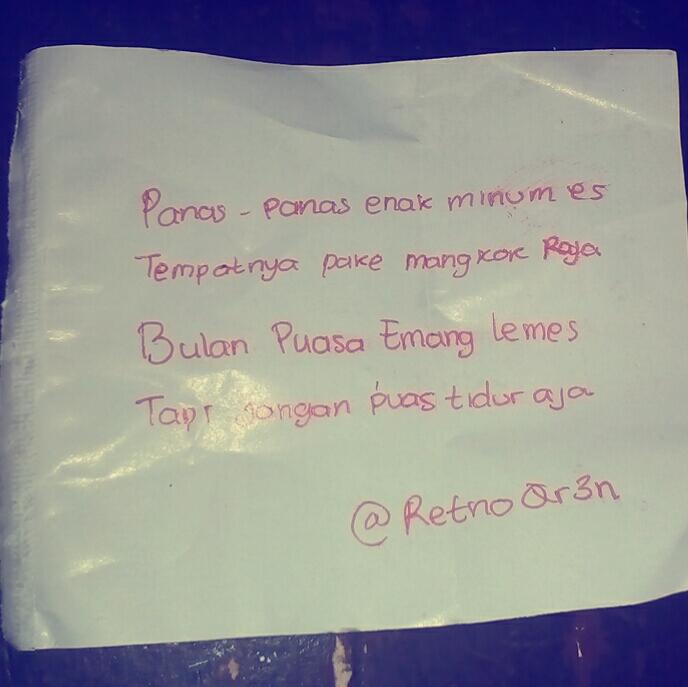 Panas - panas enak minum es
Tempatnya pake mangkok Raja
Bulan Puasa Emang lemes
Tapi jangan puas tidur aja
@Retno Ar3n